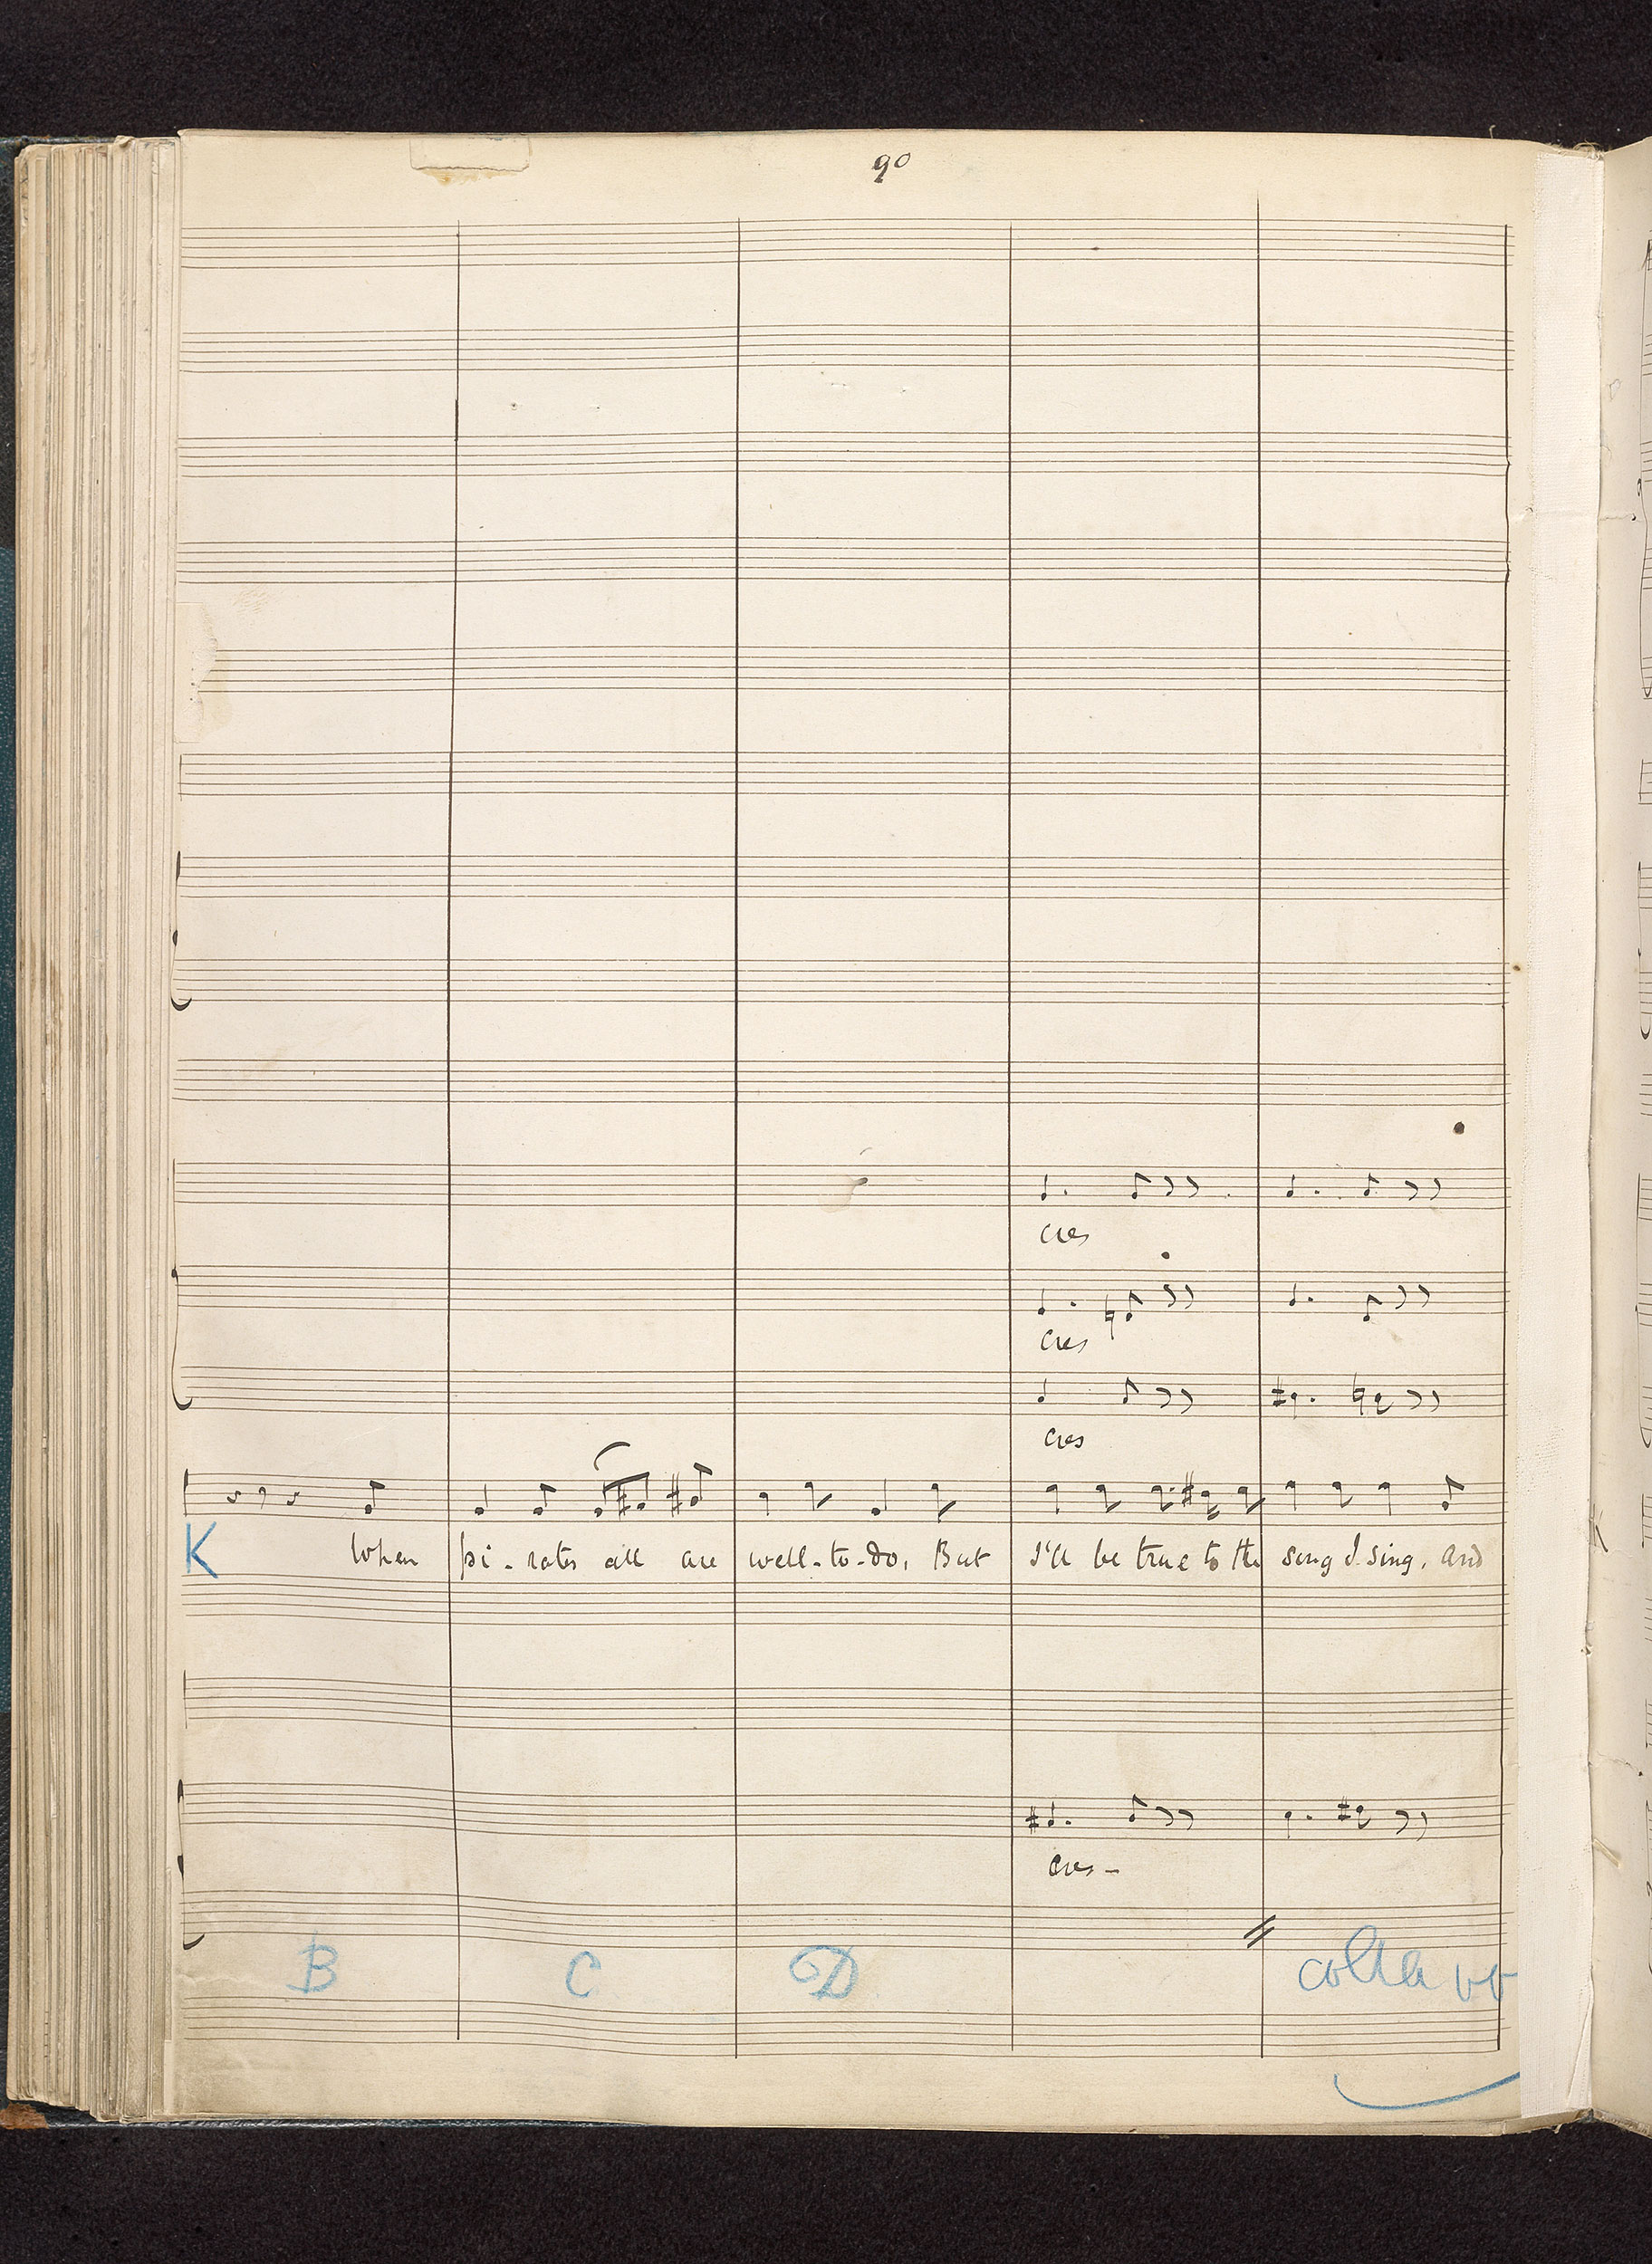 90
cres
cres
cres
K When pi-rates all are well-to-do, But I'll be true to the song I sing, and
cres-
B C D colla